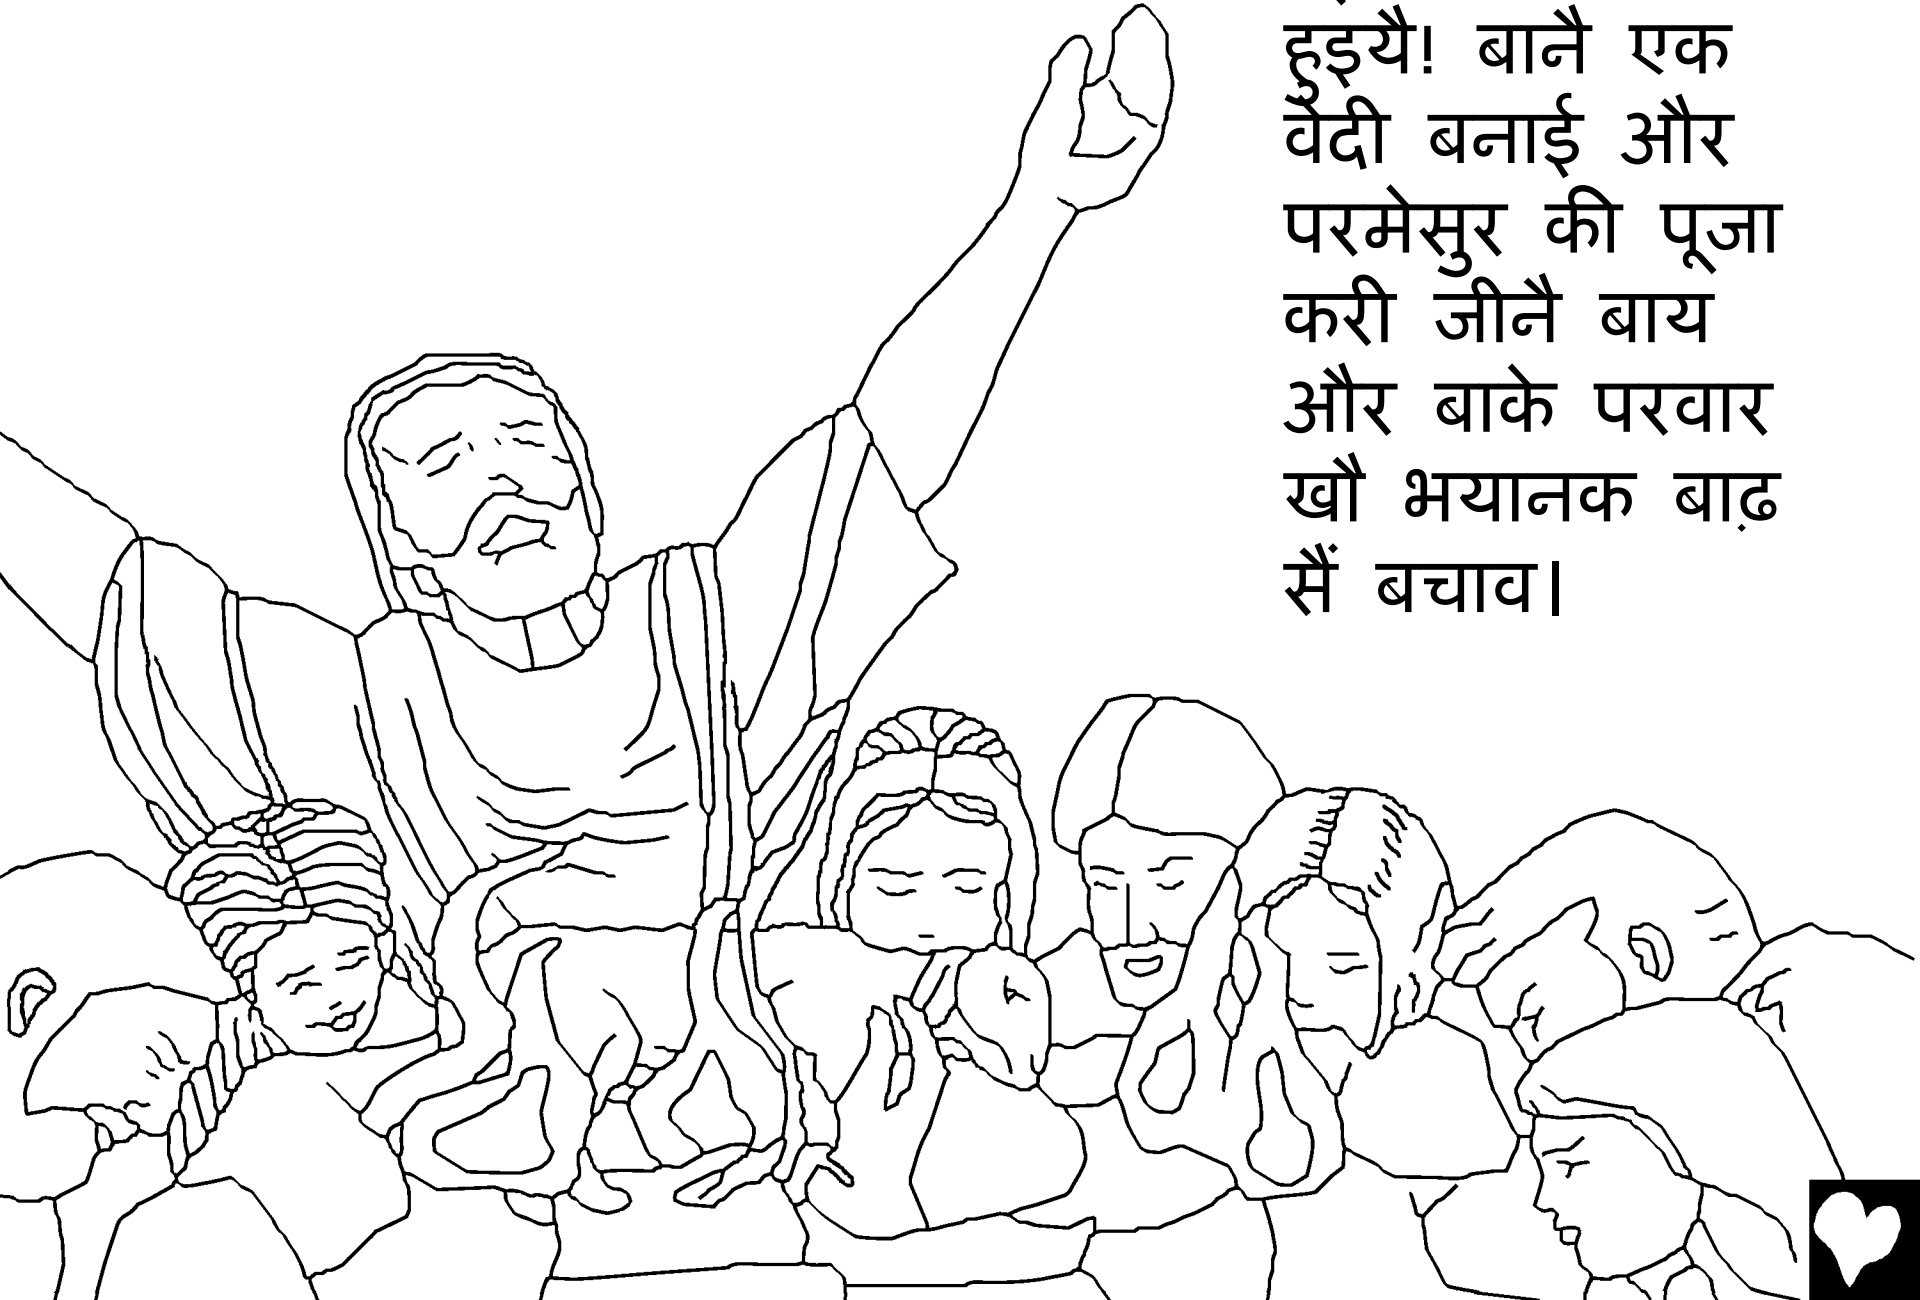 हुइयै! बानै एक
वेदी बनाई और
परमेसुर की पूजा
करी जीनै बाय
और बाके परवार
खौ भयानक बाढ़
सैं बचाव।